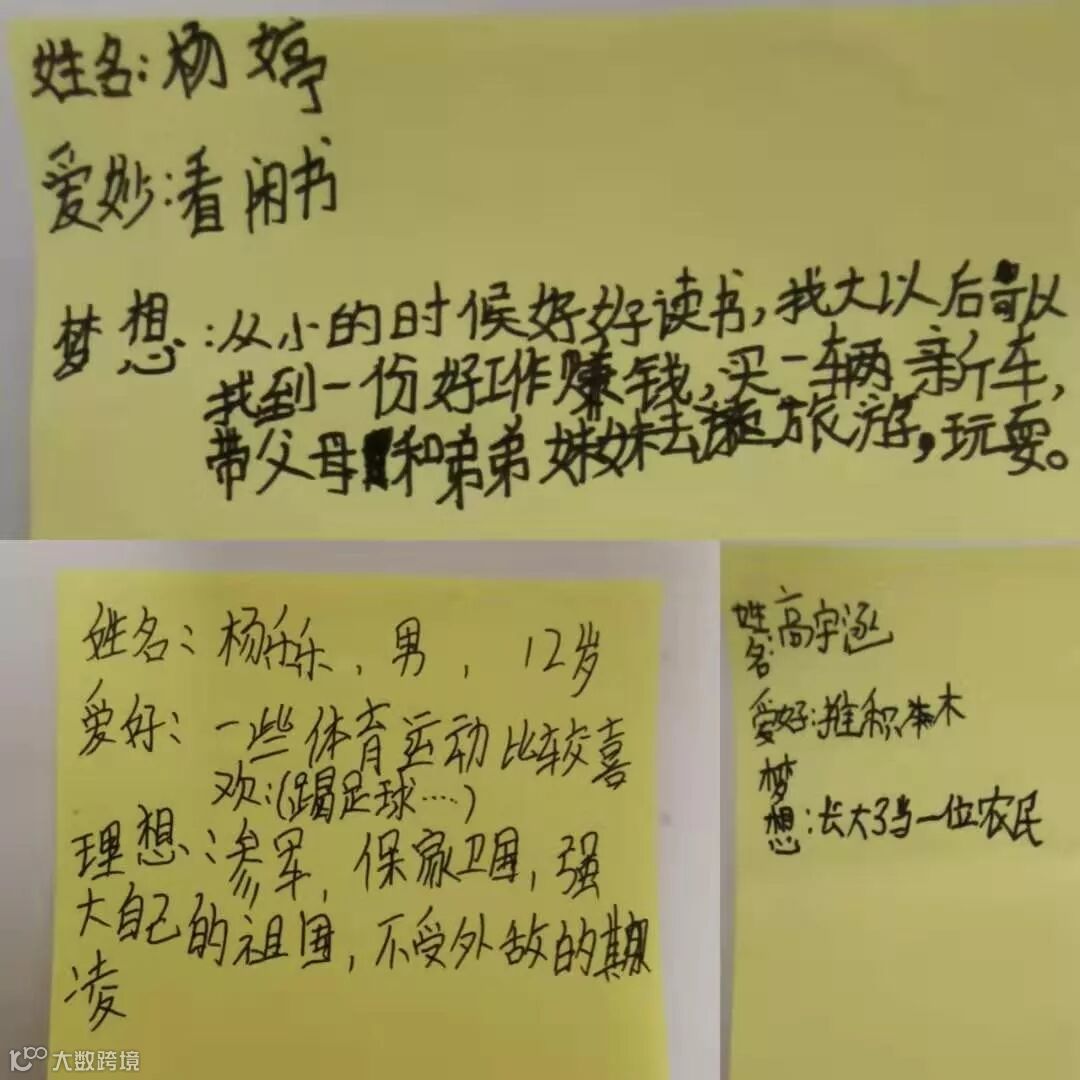 姓名:杨婷
爱妙:看闲书
梦想:从小的时候好好读书,我大以后可以
找到一份好工作赚钱,买一辆新车,
带父母和弟弟妹妹去旅游,玩耍。
姓名:杨乐乐,男,12岁
爱好:一些体育运动比较喜
欢:(踢足球……)
理想:参军,保家卫国,强
大自己的祖国,不受外敌的欺
凌
姓名:高宇涵
爱好:推积木
梦
想:长大了当一位农民
大数跨境